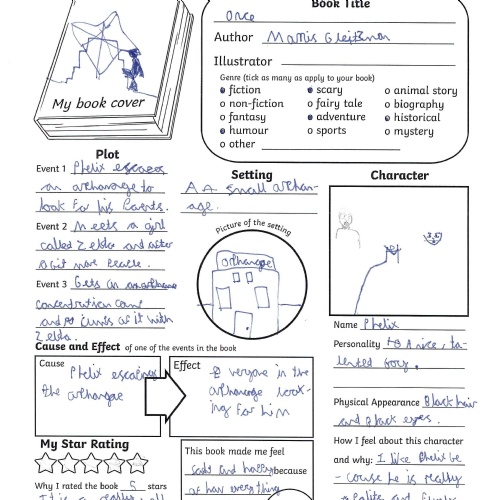 Book Title
Once
Author Morris Gleitzman
Illustrator
Genre (tick as many as apply to your book)
fiction
scary
animal story
non-fiction
fairy tale
biography
fantasy
adventure
historical
humour
sports
mystery
other
My book cover
Plot
Event 1 Phelix escapes
an orthanage to
look for his Parents.
Event 2 Meets a girl
called Zelda and after
a bit more
Event 3 Gets in
concentration camp
and
Zelda.
Setting
A small orthan-
age.
Picture of the setting
orthanage
Character
Name Phelix
Personality A nice, ta-
lented boy.
Physical Appearance Black hair
and Black eyes.
How I feel about this character
and why: I like Phelix be
-cause he is really
Polite and
Cause and Effect of one of the events in the book
Cause
Phelix escaping
the orthanage
Effect
Everyone in the
orthanage look-
ing for him
My Star Rating
Why I rated the book 5 stars
It is a really
This book made me feel
sad and happy because
everything